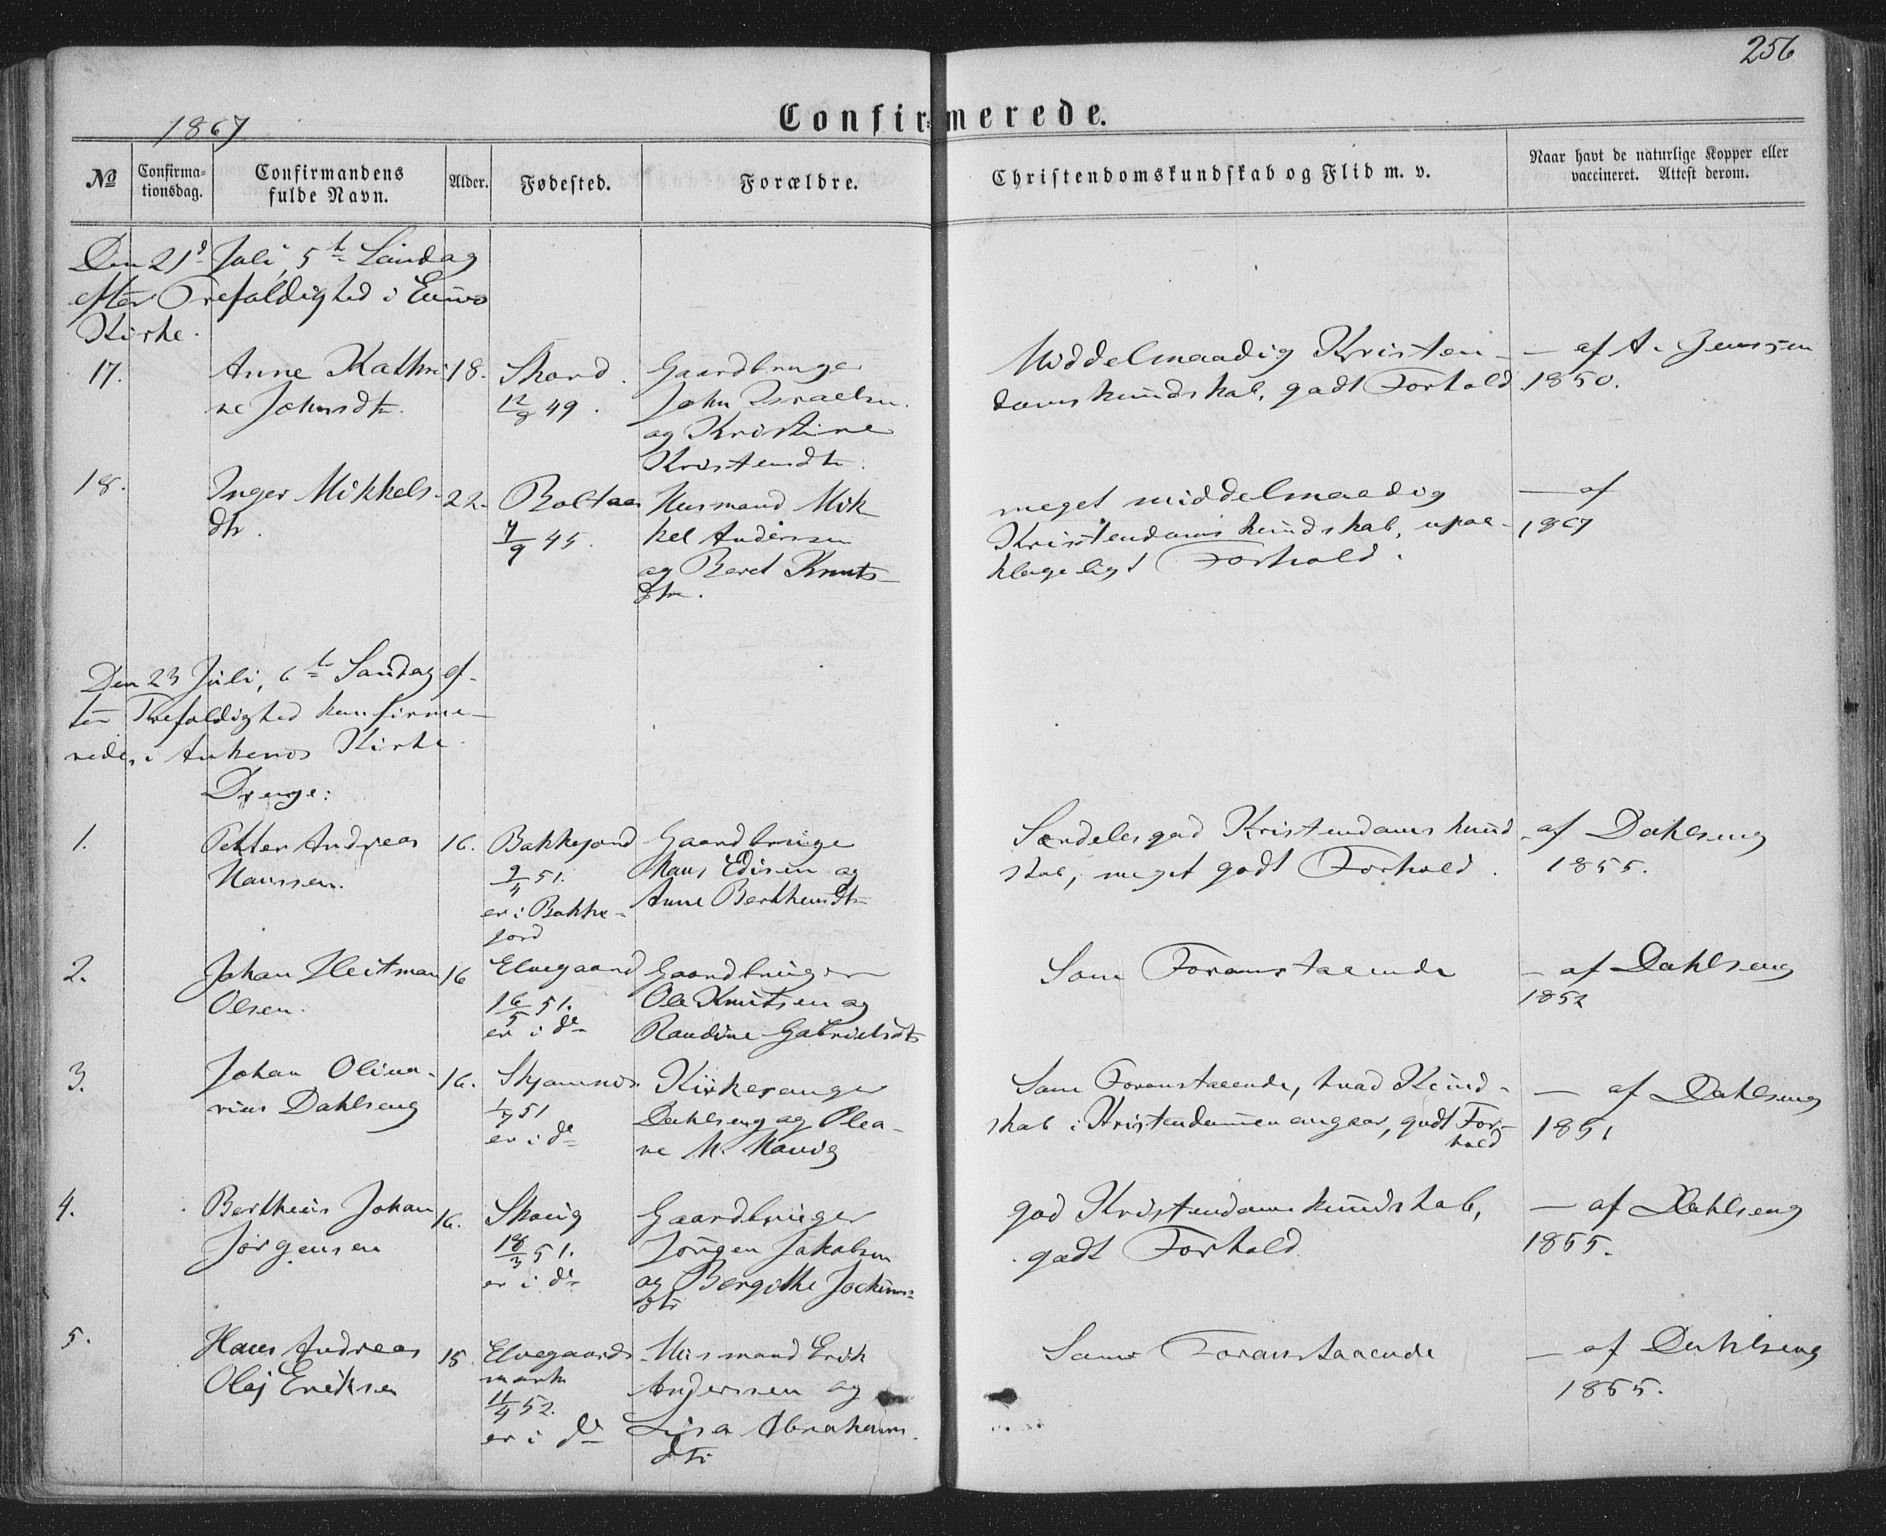 256
1867.
Confirmerede.
No
Confirma-
tionsdag.
Confirmandens
fulde Navn.
Alder.
Fødested.
Forældre.
Christendomskundskab og Flid m. v.
Naar havt de naturlige Kopper eller
vaccineret. Attest derom.
Den 21d Juli, 5te Søndag
efter Trefoldighed i
Kirke.
17.
Anne Kathri-
ne Johnsdtr.
18.
12/8 49.
Gaardbruger
John Israelsen
og Kristine
Kristensdtr.
Middelmaadig Kristen-
domskundskab, godt Forhold
— af A. Jenssen
1850.
18.
Inger Mikkels-
dtr.
22.
Boltaas
7/9 45.
Husmand Mik-
kel Anderssen
og Beret Knuts-
dtr.
meget middelmaadig
Kristendomskundskab, upaa-
klageligt Forhold.
— af
1867
Den 23 Juli, 6te Søndag ef-
ter Trefoldighed konfirme-
redes i Ankenes Kirke
Drenge:
1.
Petter Andreas
Hanssen.
16.
Bakkejord
51.
er i Bakke-
jord
Gaardbruger
Hans Edisen og
Anne Bertheusdtr
Særdeles god Kristendomskund-
skab, meget godt Forhold.
— af Dahlseng
1855.
2.
Johan Heitman
Olsen.
16
Elvegaard
16/5 51.
er i do
Gaardbruger
Ole Knutsen og
Randine Gabrielsdtr
Som Foranstaaende
— af Dahlseng
1852
3.
Johan Oliva-
rius Dahlseng
16.
Skjomnes
1/7 51
er i do
Kirkesanger
Dahlseng og Olea-
ne M. Havig
Som Foranstaaende, hvad Kund-
skab i Kristendommen angaar, godt For-
hold
— af Dahlseng
1851
4.
Bertheus Johan
Jörgensen
16.
18/3 51.
er i do
Gaardbruger
Jörgen Jakobsen
og Bergithe Jochums-
dtr
god Kristendomskundskab,
godt Forhold
— af Dahlseng
1855.
5.
Hans Andreas
Olaj Eriksen
15.
Elvegaards
mark
11/4 52.
er i do
Husmand Erik
Anderssen og
Lisa Abrahams-
dtr
Som Foranstaaende
— af Dahlseng
1855.